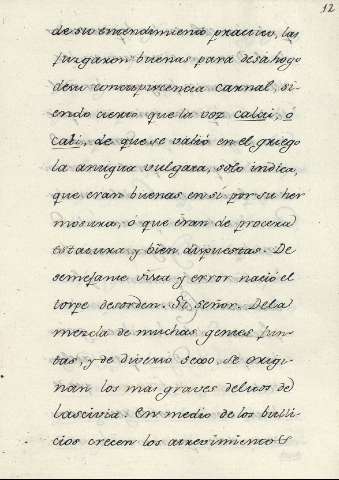 12
de su entendimiento practico, las
juzgaron buenas para desahogo
de su concupiscencia carnal, si-
endo cierto que la voz caloi, ó
cali, de que se valió en el griego
la antigua vulgata, solo indica,
que eran buenas en sí por su her
mosura, ó que eran de procera
estatura y bien dispuestas. De
semejante vista y error nació el
torpe desorden. Si, Señor. De la
mezcla de muchas gentes jun-
tas, y de diverso sexo, se origi-
nan los mas graves delitos de
lascivia. En medio de los bulli-
cios crecen los atrevimientos